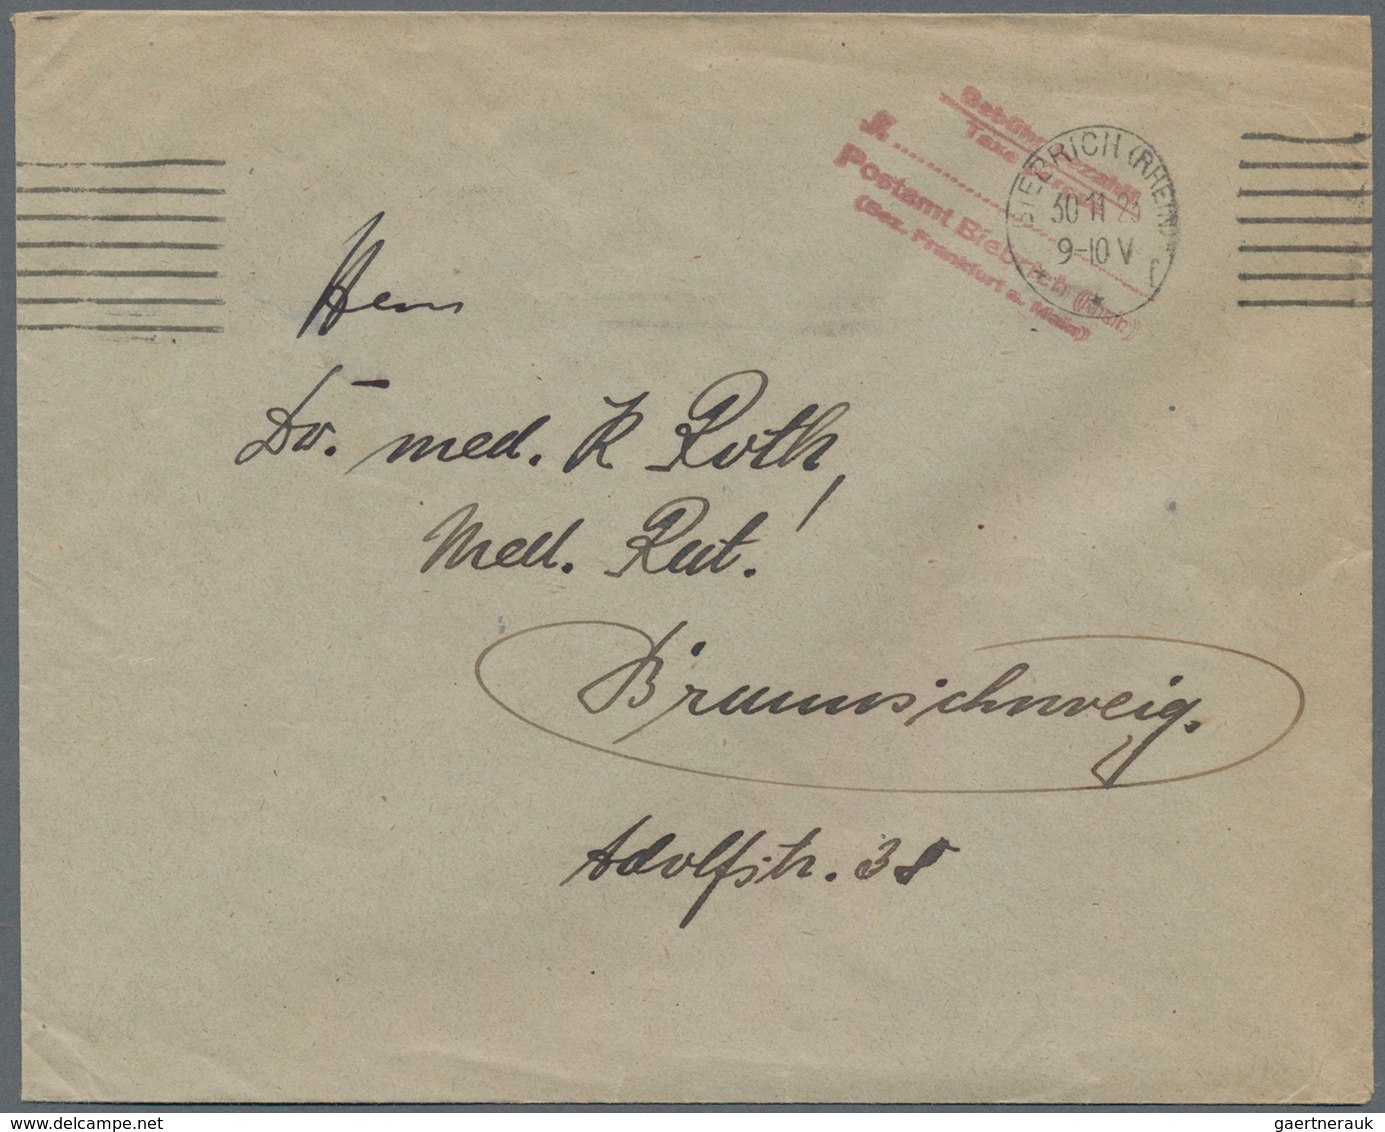 Gebühr bezahlt
Taxe perçue
J.
Postamt Biebrich (Rhein)
(Bez. Frankfurt a. Main)
BIEBRICH (RHEIN)
30 11 23
9-10 V
* C
Herrn
Dr. med. K Roth,
Med. Rat!
Braunschweig.
Adolfstr. 38
delcampe.net
gaertnerauk